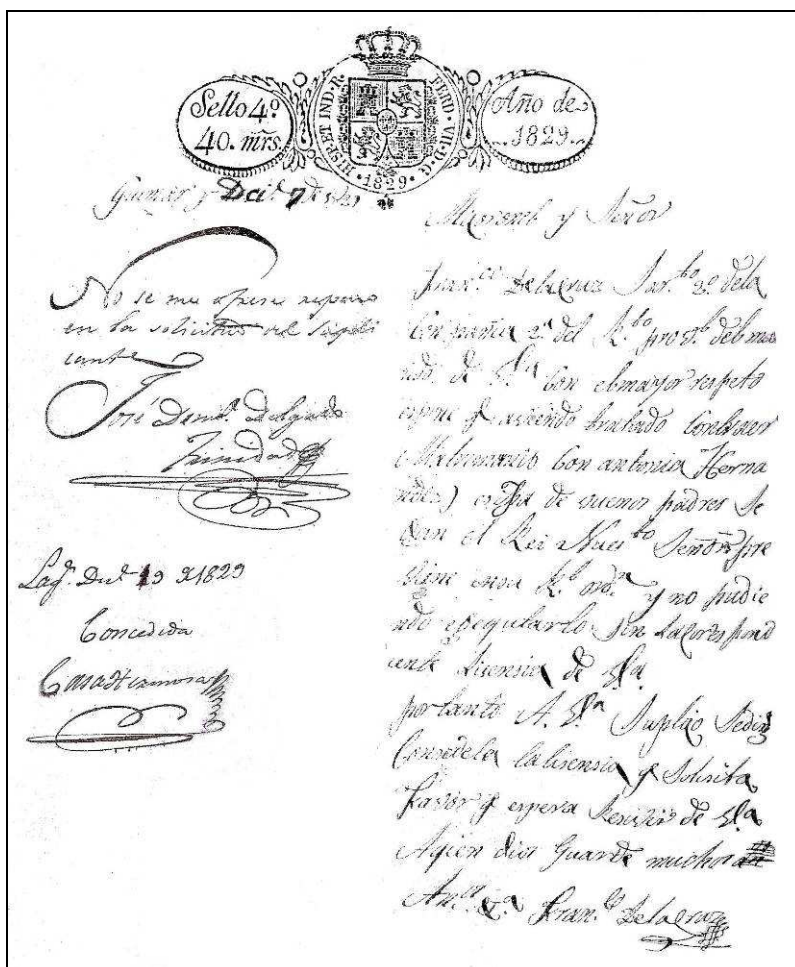 Sello 4º
40. mrs.
HISP. ET IND. R. FERD. VII. D. G. 1829
Año de
1829
Guimar y Dcie. 7 de 1829
No se me ofrece reparo
en la solicitud del supli
cante
José Delgado
Trinidad
Lag. Dice. 19 de 1829
Concedida
Casa Hermosa
y Señor
Fran.co Delacruz Sar.to 2º dela
Compañia 2ª del R.to pro.l del ma
ndo de S.ª Con el mayor respeto
espone q. asiendo tratado Contraer
Matrimonio Con antonia Herna
ndez) esija de buenos padres Se
Gun el Rei Nues.to Señor pre
biene en sea R.l ord.n y no pudie
ndo esequtarlo sin la Corespond
iente Lisensia de S.ª
por tanto A S.ª Suplico Sedin
Consedela la lisensia q Solisita
favor q espera Resivir de S.ª
Aqien dios Guarde muchos
Fran.co Delacruz